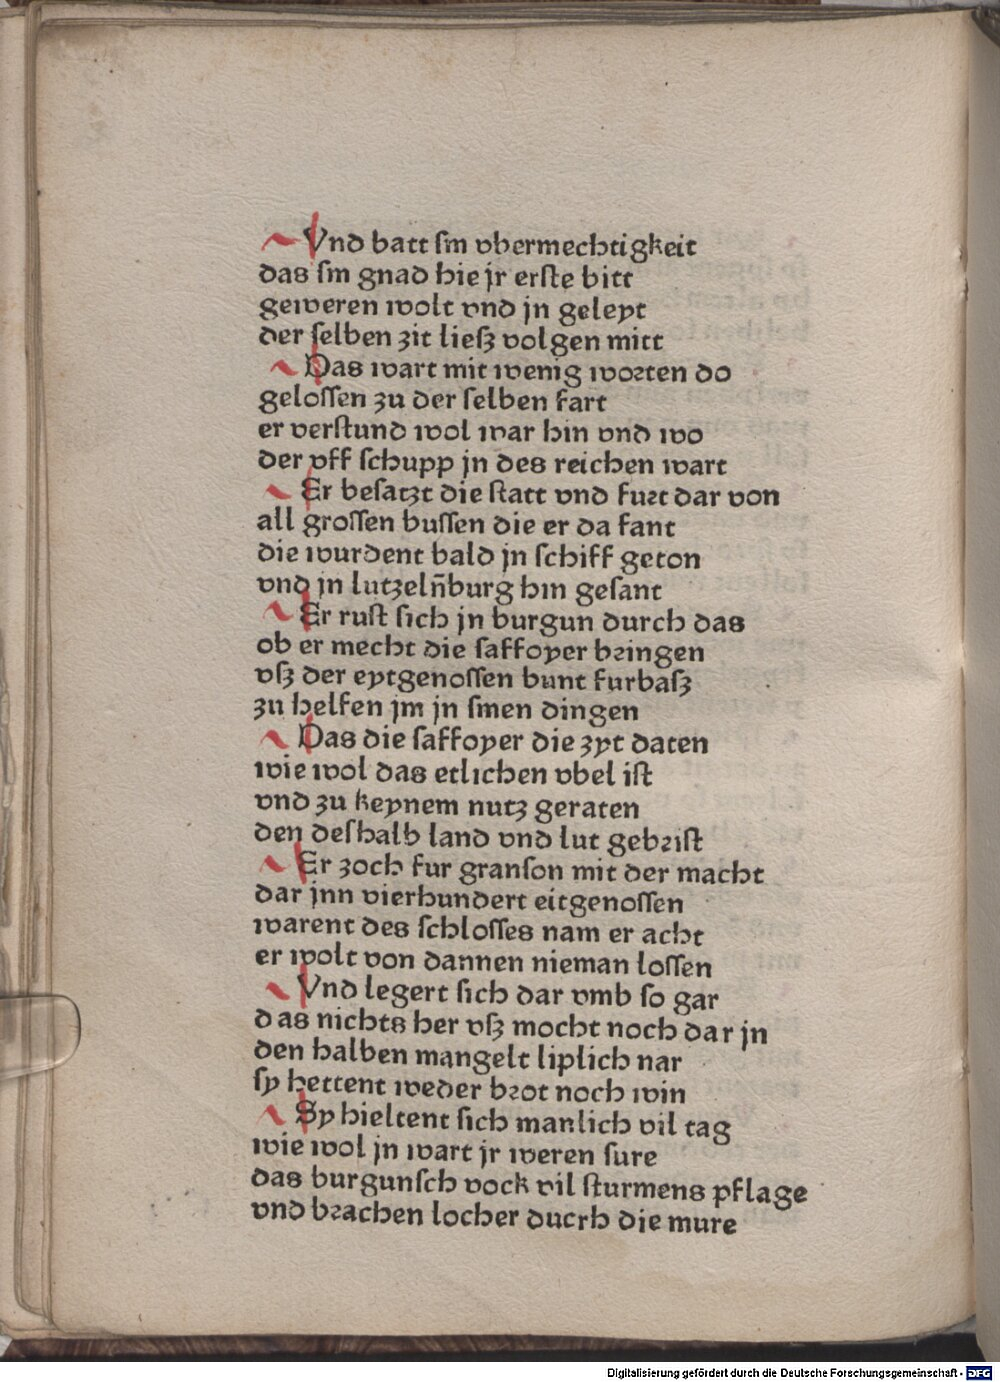 Vnd batt sin vbermechtigkeit
das sin gnad hie jr erste bitt
geweren wolt vnd jn geleyt
der selben zit liesz volgen mitt
Das wart mit wenig worten do
gelossen zu der selben fart
er verstund wol war hin vnd wo
der vff schupp jn des reichen wart
Er besatzt die statt vnd furt dar von
all grossen bussen die er da fant
die wurdent bald jn schiff geton
vnd jn lutzelñburg hin gesant
Er rust sich jn burgun durch das
ob er mecht die saffoyer bringen
vsz der eytgenossen bunt furbasz
zu helfen jm jn sinen dingen
Das die saffoyer die zyt daten
wie wol das etlichen vbel ist
vnd zu keynem nutz geraten
den deshalb land vnd lut gebrist
Er zoch fur granson mit der macht
dar jnn vierhundert eitgenossen
warent des schlosses nam er acht
er wolt von dannen nieman lossen
Vnd legert sich dar vmb so gar
das nichts her vsz mocht noch dar jn
den halben mangelt liplich nar
sy hettent weder brot noch win
Sy hieltent sich manlich vil tag
wie wol jn wart jr weren sure
das burgunsch vock vil sturmens pflage
vnd brachen locher ducrh die mure
Digitalisierung gefördert durch die Deutsche Forschungsgemeinschaft - DFG